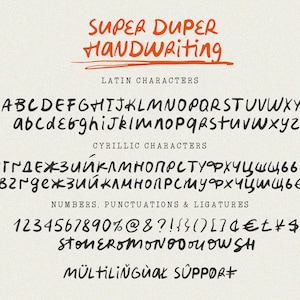 SUPER DUPER
HANDWRiting
LATIN CHARACTERS
ABCDEFGHIJKLMNOPQRSTUVWXY
abcdefghijklmnopqrstuvwxyz
CYRILLIC CHARACTERS
ГДЕЖЗИЙКЛМНОПРСТУФХЧЦШЩЬ
ВГДЕЖЗИЙКЛМНОПРСТУФХЧЦШЩЬ
NUMBERS, PUNCTUATIONS & LIGATURES
1234567890%@&?!{}()[]¢€£¥$
MÜLTILIÑGÙAL SÛPPORT